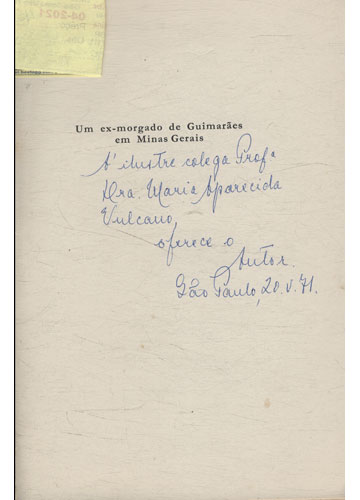 04-2021
Preço
Um ex-morgado de Guimarães
em Minas Gerais
A' ilustre colega Profª
Dra. Maria Aparecida
Vulcano,
oferece o
Autor.
São Paulo, 20.V.71.